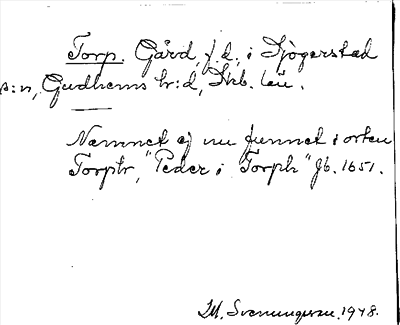 Torp. Gård, f.d., i Sjögerstad
s:n, Gudhems hr:d, Skb. län.
Namnet ej nu funnet i orten
Torptr, "Peder i Torph" Jb. 1651.
M. Svenungsson. 1948.